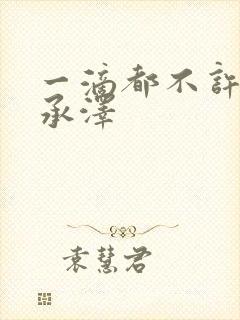 一滴都不許
承澤
袁慧君